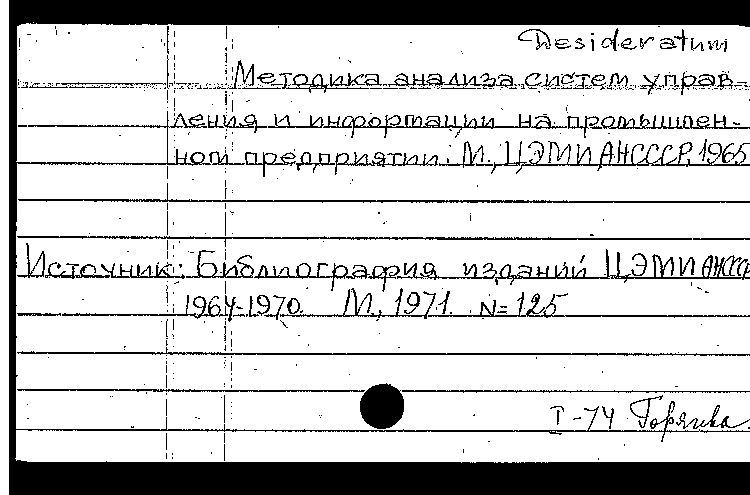 Desideratum
Методика анализа систем управ-
ления и информации на промышлен-
ном предприятии. М., ЦЭМИ АНСССР, 1965
Источник: Библиография изданий ЦЭМИ АНСССР
1964-1970. М., 1971. N=125
I-74 Горячева